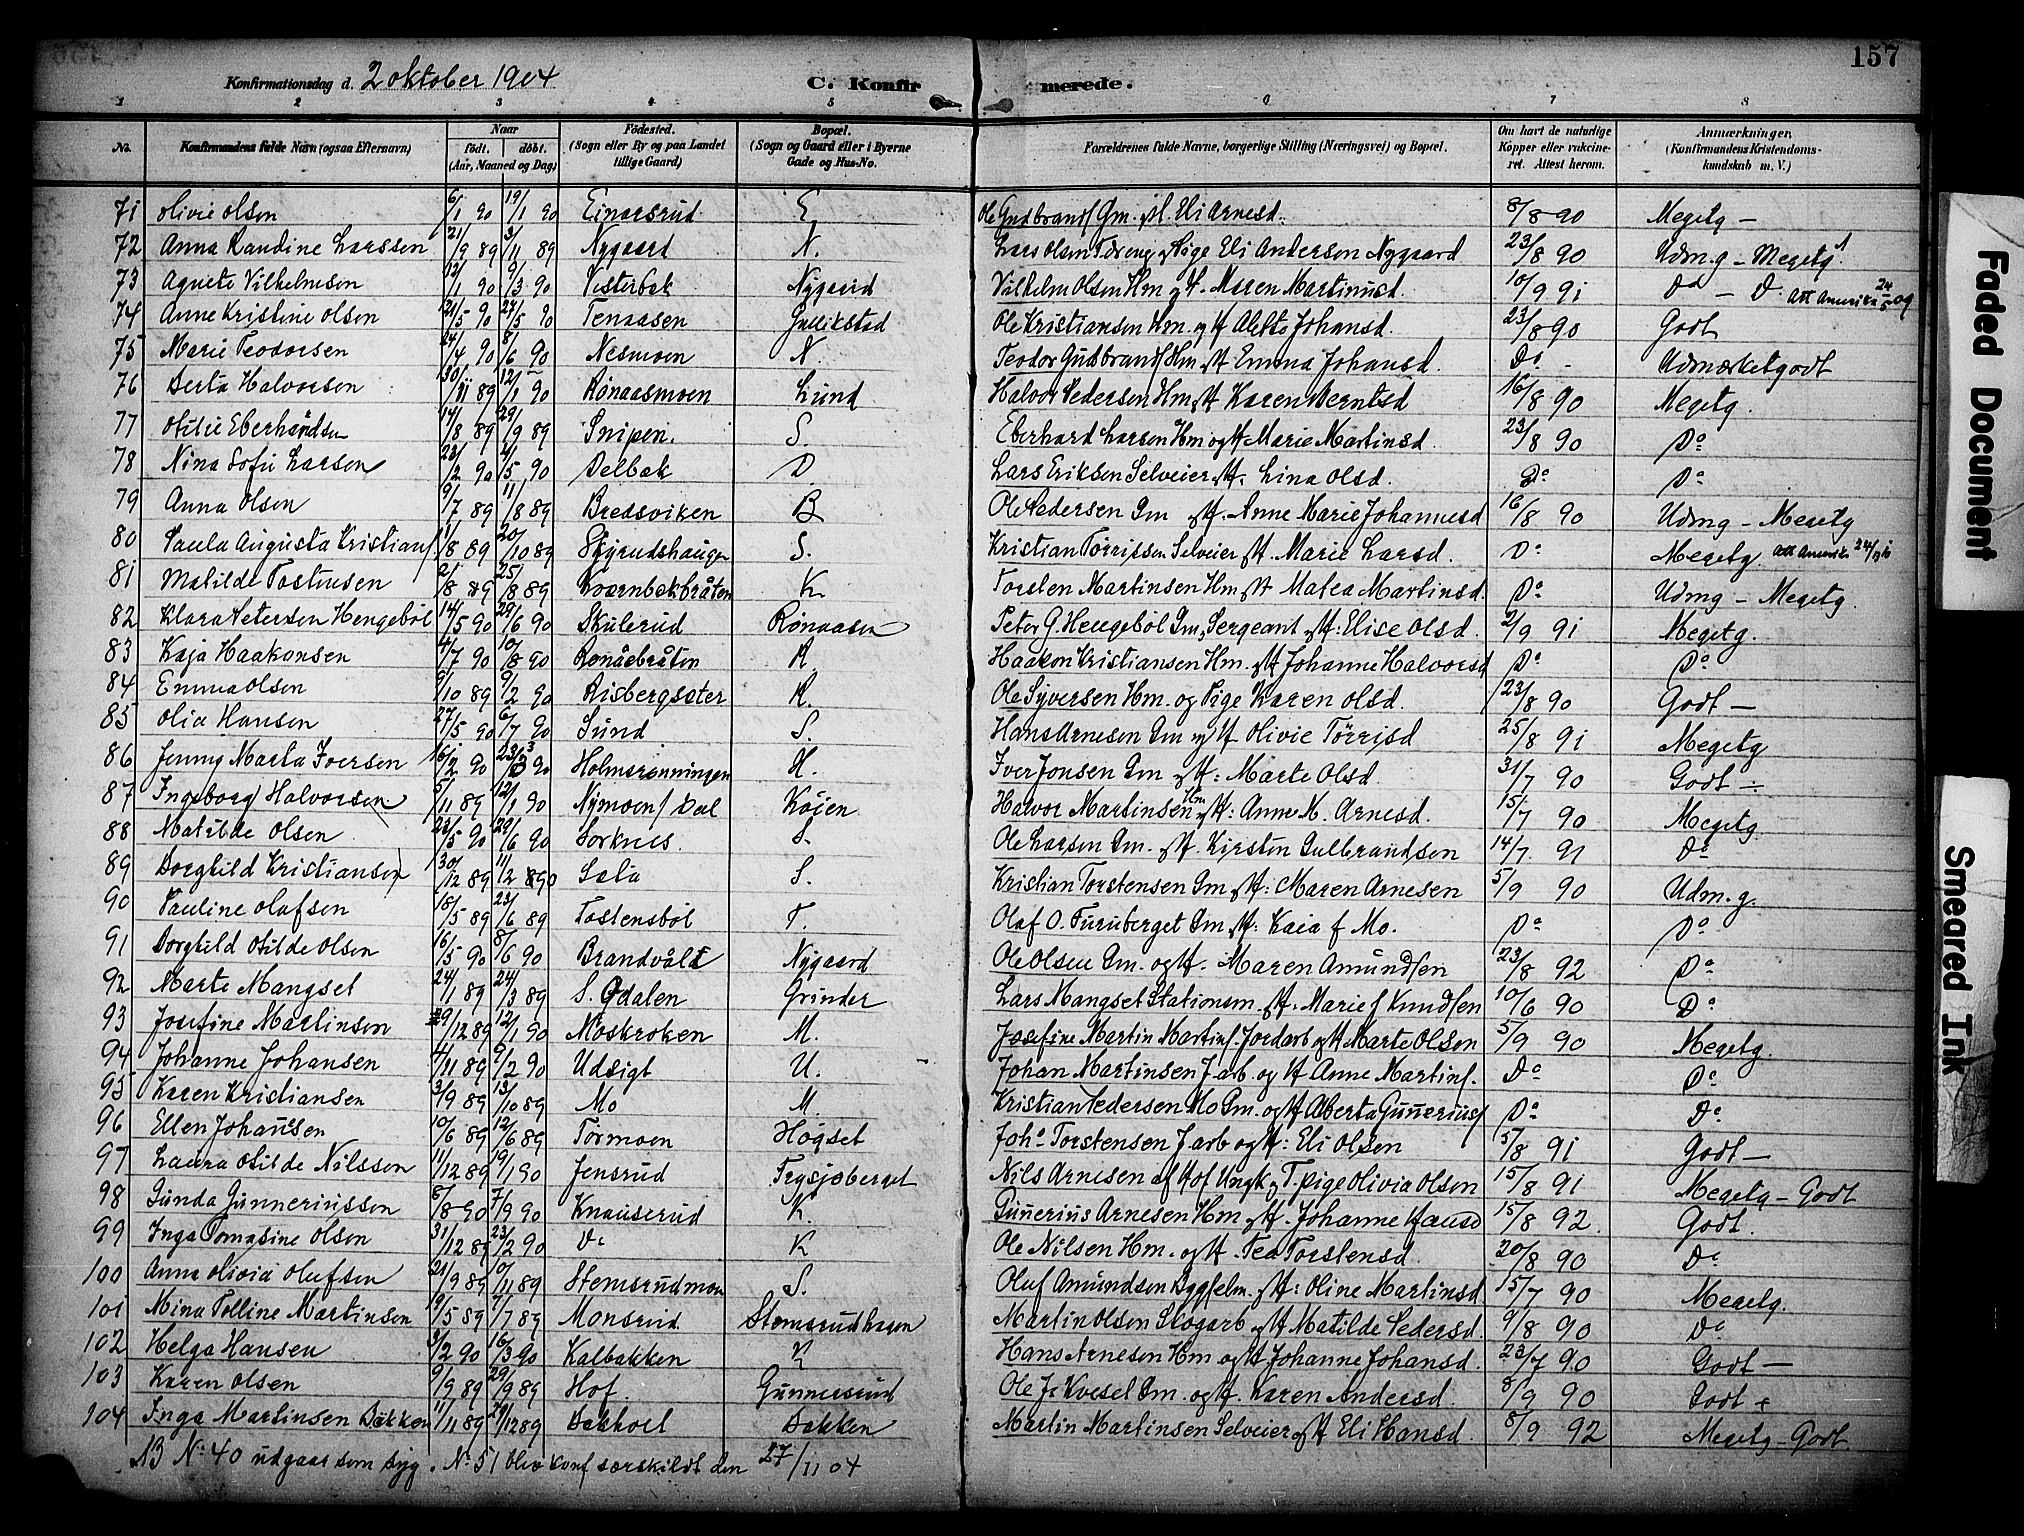 157
Konfirmationsdag d. 2 oktober 1904 C. Konfirmerede.
1 2 3 4 5 6 7 8
No. Konfirmandens fulde Navn (ogsaa Efternavn) Naar født. døbt. (Aar, Maaned og Dag) Fødested. (Sogn eller By og paa Landet tillige Gaard) Bopæl. (Sogn og Gaard eller i Byerne Gade og Hus-No.) Forældrenes fulde Navne, borgerlige Stilling (Næringsvei) og Bopæl. Om havt de naturlige Kopper eller vakcineret. Attest herom. Anmærkninger. (Konfirmandens Kristendomskundskab m. V.)
71 Olivie Olsen 6/1 90 19/1 90 Einarsrud E. Ole Gudbrands Gm. og H. Eli Arnesd. 8/8 90 Megetg —
72 Anna Randine Larssen 21/9 89 3/11 89 Nygaard N. Lars Olsen og Pige Eli Andersen Nygaard 23/8 90 Udm.g — Megetg.
73 Agnete Vilhelmsen 12/1 90 9/3 90 Vesterbæk Nygaard Vilhelm Olsen Hm og H. Maren Martinusd. 10/9 91 Do — Do. Att Amerika 24/5 09
74 Anne Kristine Olsen 21/5 90 27/5 90 Tenaasen Gullikstad Ole Kristiansen Hm. og H Alette Johansd. 23/8 90 Godt
75 Marie Teodorsen 24/4 90 8/6 90 Nesmoen N. Teodor Gudbrands Hm. H Emma Johansd. Do. Udmærketgodt
76 Berta Halvorsen 30/11 89 12/1 90 Rønaasmoen Lund Halvor Pedersen Hm og H Karen Berntsd 16/8 90 Megetg.
77 Otilie Eberhardsen 14/8 89 29/9 89 Snipen. S. Eberhard Larsen Hm og H Marie Martinsd. 23/8 90 Do
78 Nina Sofie Larsen 23/2 90 4/5 90 Delbæk D. Lars Eriksen Selveier H. Lina Olsd. Do Do
79 Anna Olsen 9/7 89 11/8 89 Bredsviken B Ole Pedersen Gm og H. Anne Marie Johannesd 16/8 90 Udmg — Megetg
80 Paula Augusta Kristians. 11/8 89 20/10 89 Skyrudshaugen S. Kristian Tørrissen Selveier og H. Marie Larsd. Do Megetg. Att Amerika
81 Matilde Tostensen 2/8 89 25/8 89 Kværnbækbråten K Torsten Martinsen Hm og H Matea Martinsd. Do Udmg — Megetg.
82 Klara Petersen Hengebøl 14/5 90 29/6 90 Skulerud Rønaasen Peter G. Hengebøl Gm, Sergeant og H. Elise Olsd. 2/9 91 Megetg.
83 Kaja Haakonsen 4/7 90 10/8 90 Rønåsbråten R. Haakon Kristiansen Hm. og H Johanne Halvorsd Do Do
84 Emma Olsen 9/10 89 9/2 90 Risbergsæter R. Ole Syversen Hm. og Pige Karen Olsd. 23/8 90 Godt —
85 Olia Hansen 27/5 90 6/7 90 Sund S. Hans Arnesen Gm og H Olivie Tørrisd 25/8 91 Megetg
86 Jenny Marta Iversen 16/2 90 23/3 90 Holmsrønningen H. Iver Jonsen Gm og H: Marte Olsd. 31/7 90 Godt —
87 Ingeborg Halvorsen 5/11 89 12/1 90 Nymoen/Dal Køjen Halvor Martinsen Hm. og H: Anne M. Arnesd. 15/7 90 Megetg.
88 Matilde Olsen 23/5 90 29/6 90 Sorknes. S. Ole Larsen Gm. og H. Kirsten Gulbrandsen 14/7 91 Do
89 Borghild Kristiansen 30/12 89 11/2 90 Sala S. Kristian Torstensen Gm og H: Maren Arnesen 5/9 90 Udm.g.
90 Pauline Olafsen 18/5 89 23/6 89 Tostensbøl T. Olaf O. Furuberget Gm H: Kaia f Mo. Do Do
91 Borghild Otilde Olsen 16/5 90 8/6 90 Brandvålt Nygaard Ole Olsen Gm. og H. Maren Amundsen 23/8 92 Do
92 Marte Mangset 24/1 89 24/3 89 S. Odalen Grinder Lars Mangset Stationsm. H. Marie f Knudsen 10/6 90 Do
93 Josefine Martinsen 29/12 89 12/1 90 Moskroken M. Josefine Martin Martins. Jordarb og H Marte Olsen 5/9 90 Megetg.
94 Johanne Johansen 4/11 89 9/2 90 Udsigt U. Johan Martinsen J.arb og H Anne Martins. Do Do
95 Karen Kristiansen 3/9 89 13/10 89 Mo M. Kristian Pedersen Mo Gm. og H Aberta Gunerius Do Do
96 Ellen Johansen 10/6 89 12/6 89 Tormoen Høgset Joh. Torstensen J arb og H: Eli Olsen 5/8 91 Godt —
97 Laura Otilde Nilsson 11/12 89 19/1 90 Jensrud Trysjøberget Nils Arnesen af Hof Ungk og T. pige Olivia Olsen 15/8 91 Megetg — Godt
98 Gunda Gunneriussen 8/8 90 7/9 90 Knauserud K. Gunerius Arnesen Hm og H. Johanne Hansd 15/8 92 Godt.
99 Inga Tomasine Olsen 31/12 89 23/2 90 Do K Ole Nilsen Hm. og H. Tea Torstensd. 20/8 90 Do
100 Anna Olivia Olufsen 21/9 89 10/11 89 Stemsrudmoen S. Oluf Amundsen H: Oline Martinsd 15/7 90 Megetg.
101 Mina Telline Martinsen 19/5 89 7/7 89 Monsrud Stemsrudhagen Martin Olsen Skogarb og H Matilde Pedersd. 9/8 90 Do
102 Helga Hansen 3/2 90 16/3 90 Kalbakken K Hans Arnesen Hm og H Johanne Johansd. 23/7 90 Godt —
103 Karen Olsen 9/9 89 29/9 89 Hof. Gunnersrud Ole J. Kvesel Gm. og H. Karen Andersd. 8/9 90 Godt +
104 Inga Martinsen Bakken 11/11 89 29/12 89 Bakholt Bakken Martin Martinsen Selveier og H Eli Hansd. 8/9 92 Megetg — Godt.
NB No 40 udgaar som syg. No 51 blev konf særskildt den 27/11 04
Faded Document
Smeared Ink